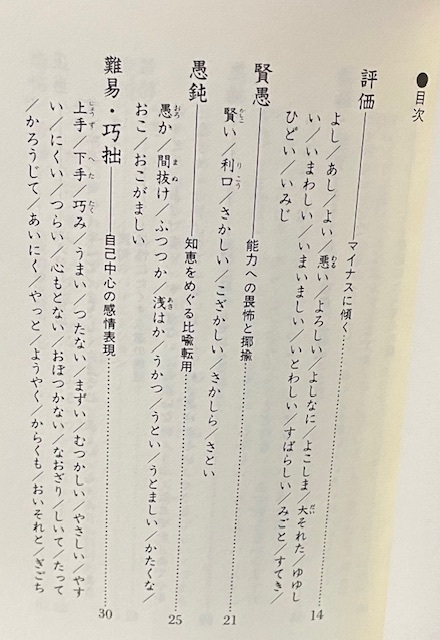 ●目次
評価――マイナスに傾く…………14
よし／あし／よい／悪い／よろしい／よしなに／よこしま／大それた／ゆゆし
い／いまわしい／いまいましい／いとわしい／すばらしい／みごと／すてき／
ひどい／いみじ
賢愚――能力への畏怖と揶揄…………21
賢い／利口／さかしい／こざかしい／さかしら／さとい
愚鈍――知恵をめぐる比喩転用…………25
愚か／間抜け／ふつつか／浅はか／うかつ／うとい／うとましい／かたくな／
おこ／おこがましい
難易・巧拙――自己中心の感情表現…………30
上手／下手／巧み／うまい／つたない／まずい／むつかしい／やさしい／やす
い／にくい／つらい／心もとない／おぼつかない／なおざり／しいて／たって
／かろうじて／あいにく／やっと／ようやく／からくも／おいそれと／ぎごち